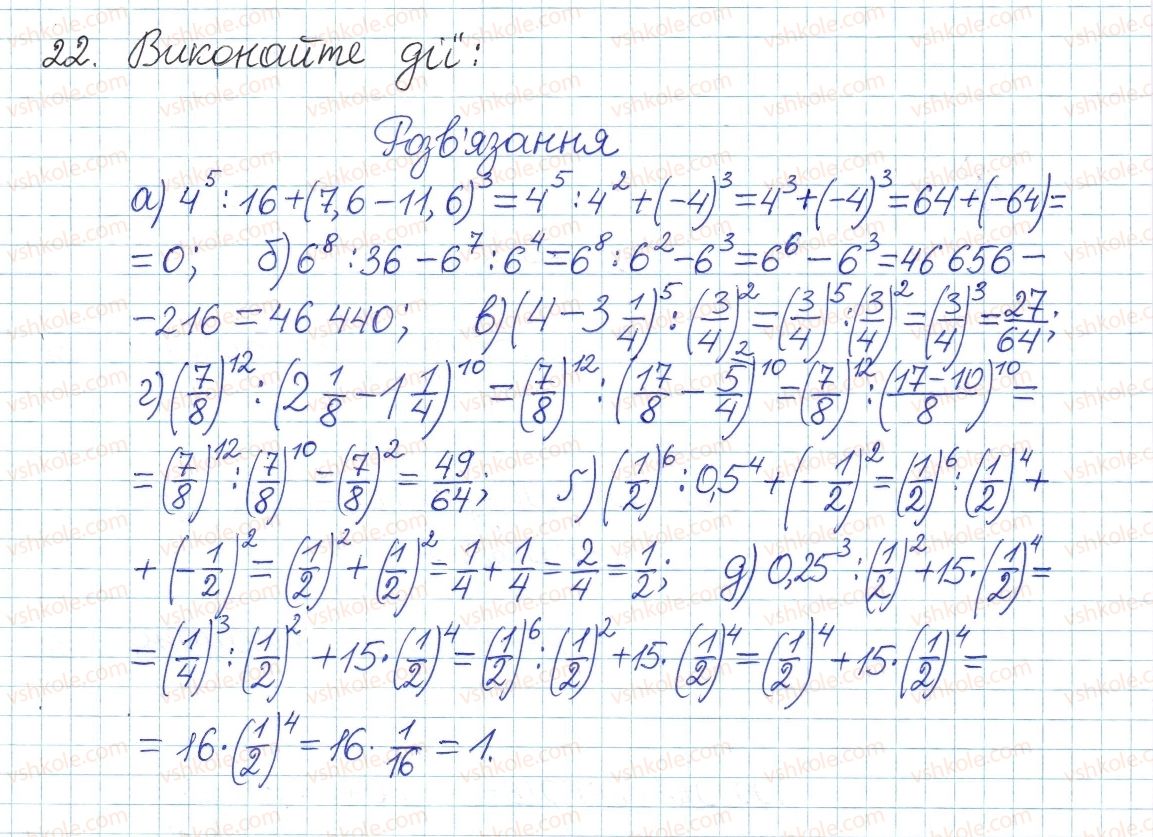 22. Виконайте дії:
Розв'язання
а) 4^5 : 16 + (7,6 − 11,6)^3 = 4^5 : 4^2 + (−4)^3 = 4^3 + (−4)^3 = 64 + (−64) =
= 0; б) 6^8 : 36 − 6^7 : 6^4 = 6^8 : 6^2 − 6^3 = 6^6 − 6^3 = 46 656 −
− 216 = 46 440; в) (4 − 3 1/4)^5 : (3/4)^2 = (3/4)^5 : (3/4)^2 = (3/4)^3 = 27/64;
г) (7/8)^12 : (2 1/8 − 1 1/4)^10 = (7/8)^12 : (17/8 − 5/4^2)^10 = (7/8)^12 : ((17−10)/8)^10 =
= (7/8)^12 : (7/8)^10 = (7/8)^2 = 49/64; ґ) (1/2)^6 : 0,5^4 + (−1/2)^2 = (1/2)^6 : (1/2)^4 +
+ (−1/2)^2 = (1/2)^2 + (1/2)^2 = 1/4 + 1/4 = 2/4 = 1/2; д) 0,25^3 : (1/2)^2 + 15 · (1/2)^4 =
= (1/4)^3 : (1/2)^2 + 15 · (1/2)^4 = (1/2)^6 : (1/2)^2 + 15 · (1/2)^4 = (1/2)^4 + 15 · (1/2)^4 =
= 16 · (1/2)^4 = 16 · 1/16 = 1.